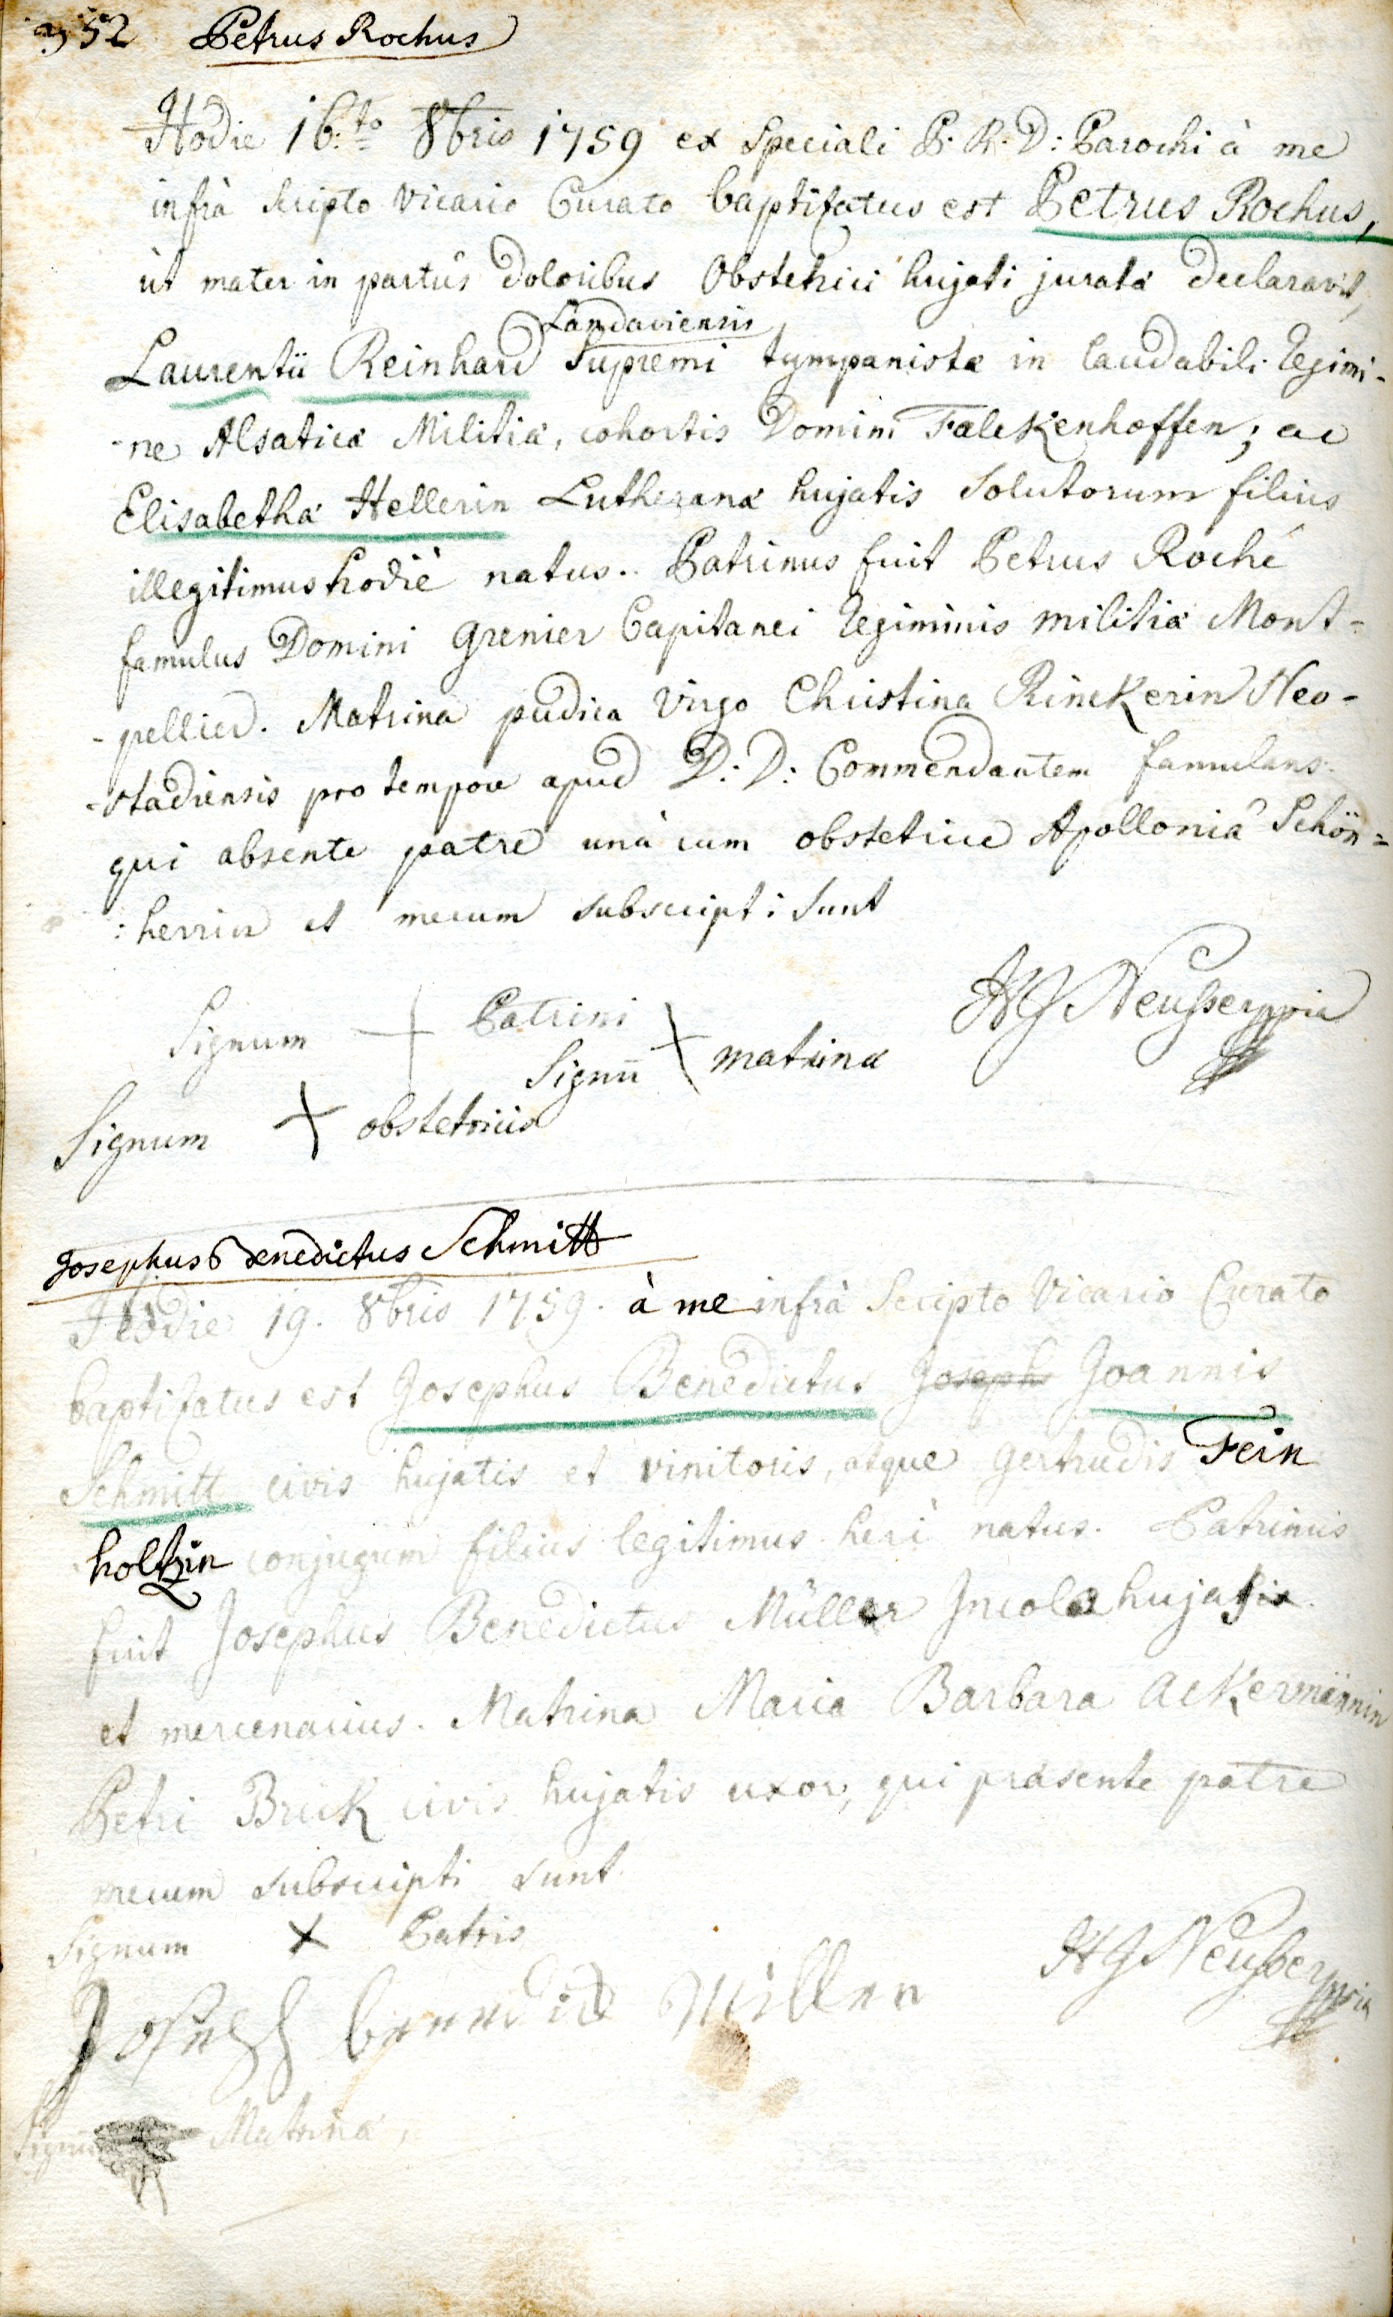 352 Petrus Rochus
Hodie 16.to 8bris 1759 ex speciali P. R. D: Parochi à me
infrà scripto Vicario Curato baptisatus est Petrus Rochus,
ùt mater in partûs doloribus Obstetrici hujati jurata declaravit,
Landaviensis
Laurentii Reinhard Supremi tympanistæ in laudabili Regimi-
-ne Alsaticæ Militiæ, cohortis Domini Falckenhoffen; ac
Elisabethæ Hellerin Lutheranæ hujatis solutorum filius
illegitimus hodiè natus. Patrinus fuit Petrus Roché
famulus Domini Grenier Capitanei Regiminis militiæ Mont-
-pellier. Matrina pudica Virgo Christina Rinckerin Neo-
-stadiensis pro tempore apud D: D: Commendantem famulans.
qui absente patre unà cum obstetrice Apolloniâ Schön=
:herrin et mecum subscripti sunt
Signum + Patrini HG Neusser mpria
Signū + matrinæ
Signum + obstetricis
Josephus Benedictus Schmitt
Hodie 19. 8bris 1759. à me infrà Scripto Vicario Curato
baptisatus est Josephus Benedictus Joseph Joannis
Schmitt civis hujatis et vinitoris, atque Gertrudis Fein
holtzin conjugum filius legitimus heri natus. Patrinus
fuit Josephus Benedictus Müller Incola hujatis
et mercenarius. Matrina Maria Barbara Ackermännin
Petri Brick civis hujatis uxor, qui præsente patre
mecum subscripti sunt
Signum + Patris HG Neusser mpria
Joseph benedict Miller
Signū Matrinæ,